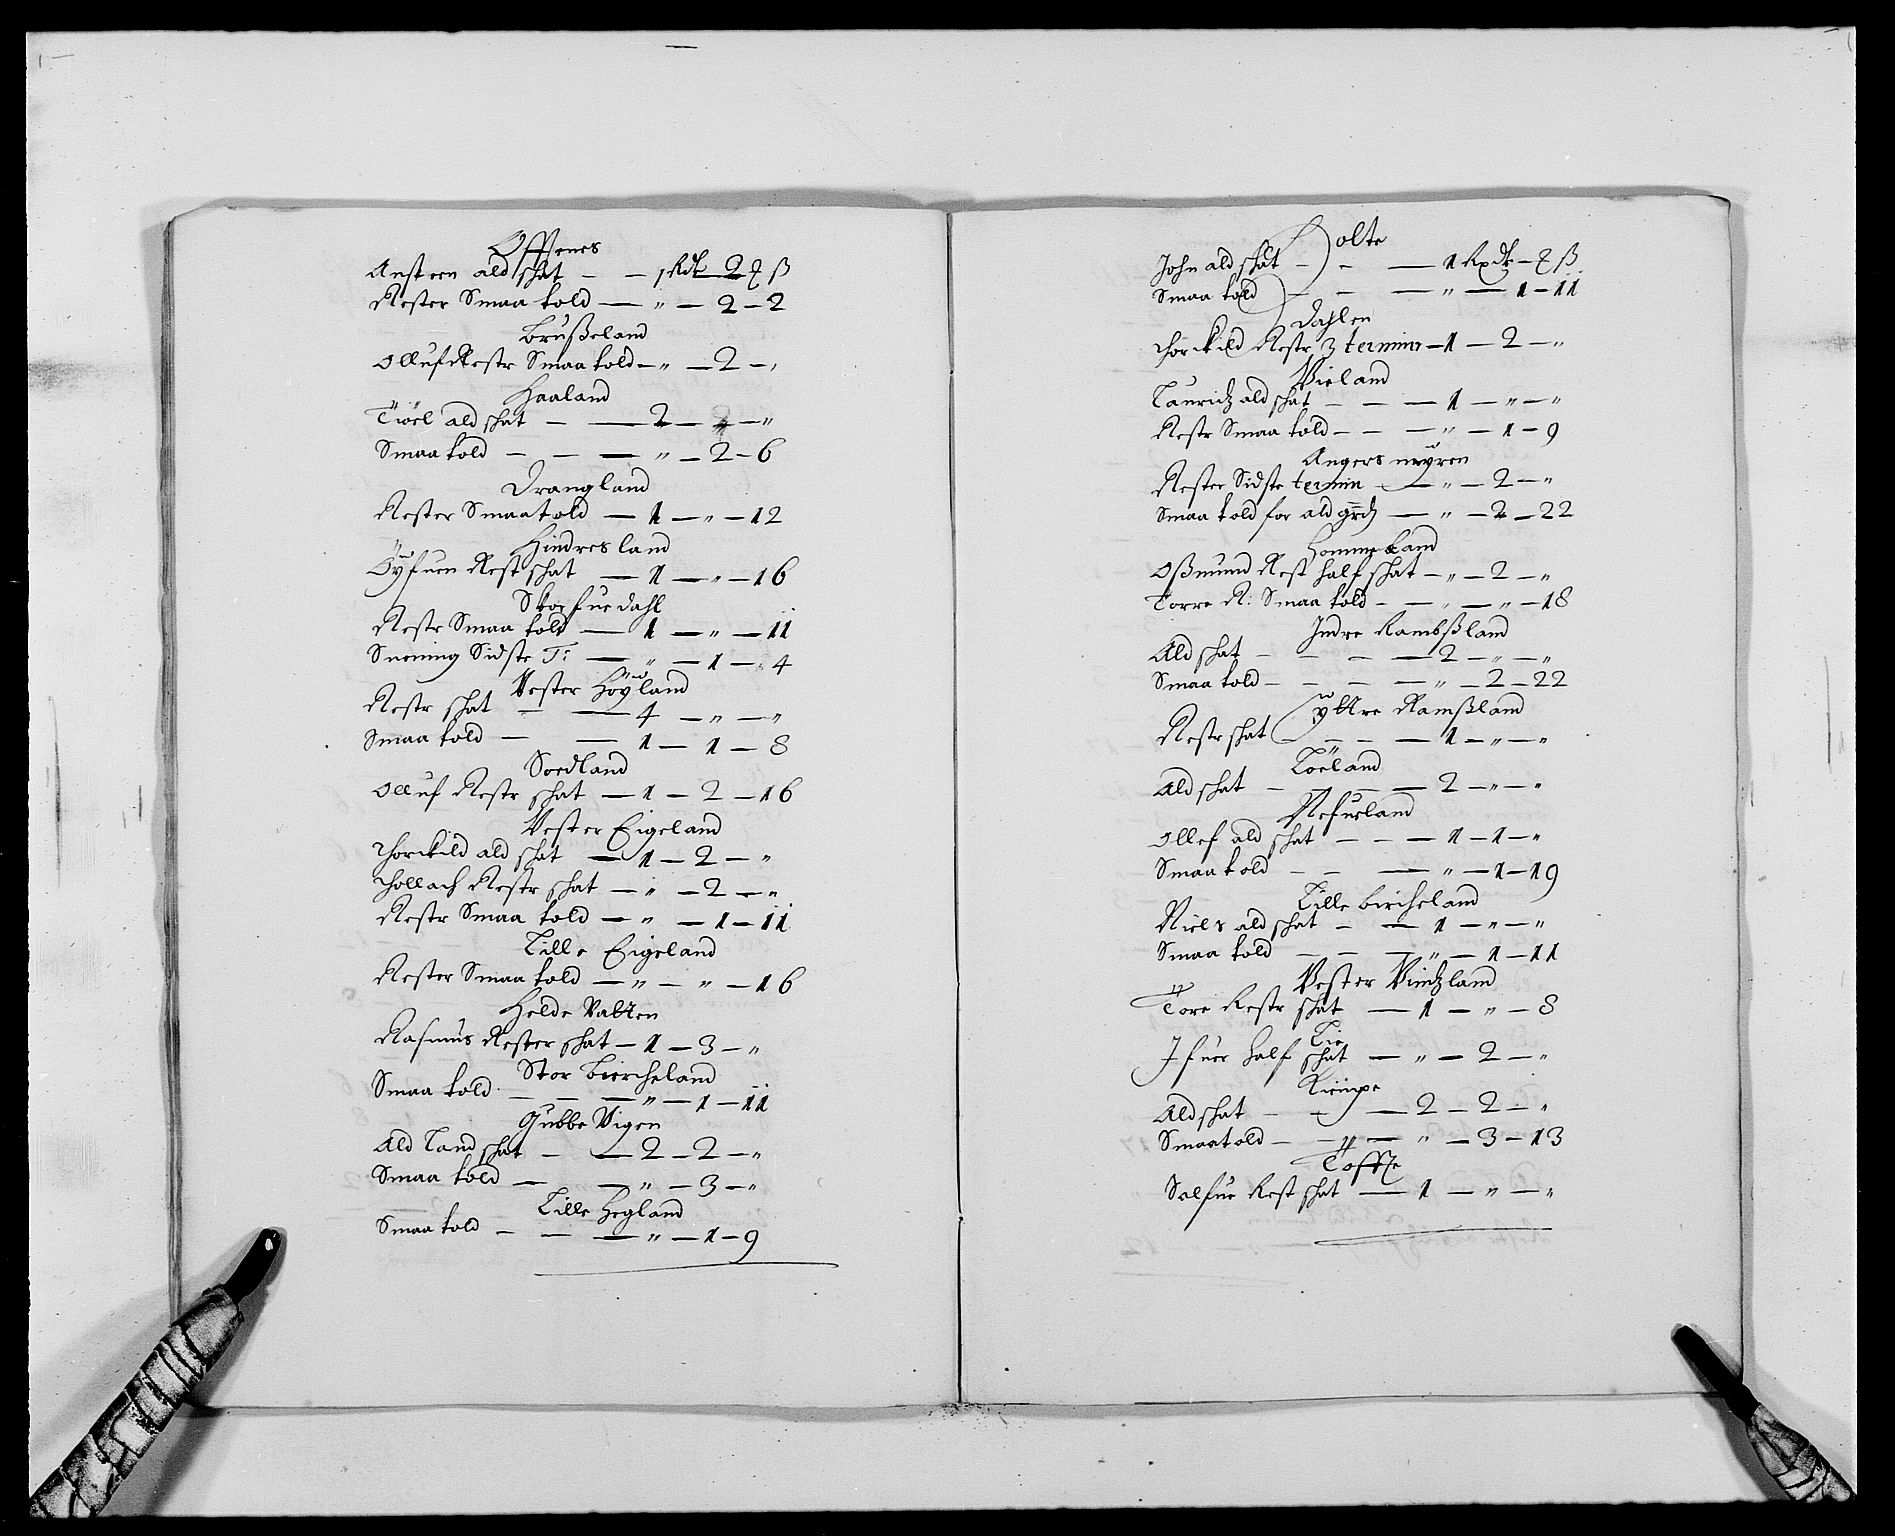 Offenes
Austeen ald schat – – 1 Rdr 2 ꝗ ß
Rester Smaa told — „ — 2 – 2
Brußeland
Olluf Restr Smaa told – „ — 2 – „
Haaland
Tiöel ald schat – — 2 – „ – „
Smaa told – – — „ – 2 – 6
Drangland
Rester Smaa told — 1 — „ – 12
Hindresland
Öyfuen Rest schat — 1 — „ – 16
Skoffuedahl
Restr Smaa told — 1 — „ — 11
Snening Sidste T: — „ — 1 – 4
Vester Höÿland
Restr schat – — 4 – „ – „
Smaa told – — 1 – 1 – 8
Soedland
Olluf Restr schat — 1 – 2 – 16
Vester Eigeland
Thorckild ald schat — 1 – 2 – „
Thollach Restr schat – „ – 2 – „
Restr Smaa told — „ — 1 – 11
Lille Eigeland
Rester Smaa told — „ – „ – 16
Helde Vatten
Rasmus Rester schat – 1 – 3 – „
Stor Biercheland
Smaa told – – — „ – 1 – 11
Gubbe Vigen
Ald Land schat – — 2 – 2 – „
Smaa told — — „ – 3 – „
Lille Hegland
Smaa told – – — „ – 1 – 9
Holte
John ald schat – – — 1 Rxdr – ꝗ ß
Smaa told – – — „ — 1 – 11
Dahlen
Thorckild Restr 3 termin – 1 – 2 – „
Vieland
Lauridtz ald schat – – — 1 – „ – „
Restr Smaa told – – — „ – 1 – 9
Angersmyren
Rester Sidste termin — „ – 2 – „
Smaa told for ald grd — „ – 2 – 22
Hommeland
Oßmund Rest half schat – „ – 2 – „
Torre R: Smaa told – — „ – „ – 18
Indre Rambßland
Ald schat – – – — 2 – „ – „
Smaa told – – – — „ – 2 – 22
Yttre Ramßland
Restr schat – – — 1 – „ – „
Löeland
Ald schat – – — 2 – „ – „
Refueland
Ollef ald schat – – — 1 – 1 – „
Smaa told – – — „ – 1 – 19
Lille Bircheland
Niels ald schat – — 1 – „ – „
Smaa told – – — „ – 1 – 11
Vester Vintzland
Tore Restr schat — 1 – „ – 8
Lie
Ifuer half schat — „ – 2 – „
Kiempe
Ald schat – – — 2 – 2 – „
Smaa told – – — „ – 3 – 13
Salfue Rest schat — 1 – „ – „